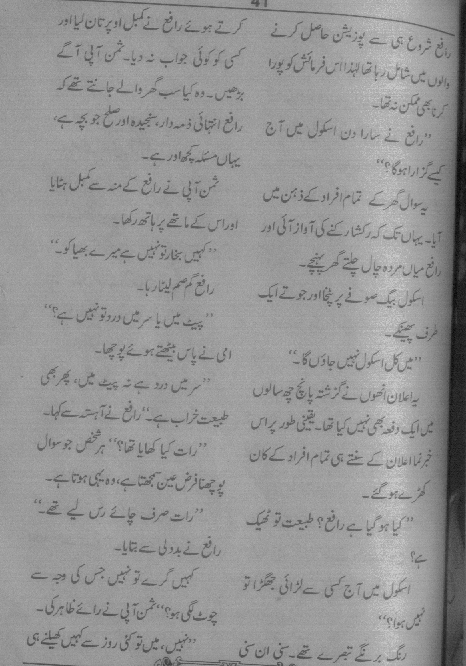 41
رافع شروع ہی سے پوزیشن حاصل کرنے
والوں میں شامل رہا تھا لہٰذا اس فرمائش کو پورا
کرنا بھی ممکن نہ تھا۔
”رافع نے سارا دن اسکول میں آج
کیسے گزارا ہوگا؟“
یہ سوال گھر کے تمام افراد کے ذہن میں
آیا۔ یہاں تک کہ رکشا رکنے کی آواز آئی اور
رافع میاں مردہ چال چلتے گھر پہنچے۔
اسکول بیگ صوفے پر پٹخا اور جوتے ایک
طرف پھینکے۔
”میں کل اسکول نہیں جاؤں گا۔“
یہ اعلان انھوں نے گزشتہ پانچ چھ سالوں
میں ایک دفعہ بھی نہیں کیا تھا۔ یقینی طور پر اس
خبر نما اعلان کے سنتے ہی تمام افراد کے کان
کھڑے ہو گئے۔
”کیا ہو گیا ہے رافع؟ طبیعت تو ٹھیک
ہے؟
اسکول میں آج کسی سے لڑائی جھگڑا تو
نہیں ہوا؟“
رنگ برنگے تبصرے تھے۔ سنی ان سنی
کرتے ہوئے رافع نے کمبل اوپر تان لیا اور
کسی کو کوئی جواب نہ دیا۔ ثمن آپی آگے
بڑھیں۔ وہ کیا سب گھر والے جانتے تھے کہ
رافع انتہائی ذمہ دار، سنجیدہ اور صلح جو بچہ ہے،
یہاں مسئلہ کچھ اور ہے۔
ثمن آپی نے رافع کے منہ سے کمبل ہٹایا
اور اس کے ماتھے پر ہاتھ رکھا۔
”کہیں بخار تو نہیں ہے میرے بھیا کو۔“
رافع گم صم لیٹا رہا۔
”پیٹ میں یا سر میں درد تو نہیں ہے؟“
امی نے پاس بیٹھتے ہوئے پوچھا۔
”سر میں درد ہے نہ پیٹ میں، پھر بھی
طبیعت خراب ہے۔“ رافع نے آہستہ سے کہا۔
”رات کیا کھایا تھا؟“ ہر شخص جو سوال
پوچھنا فرض عین سمجھتا ہے، وہ یہی ہوتا ہے۔
”رات صرف چائے رس لیے تھے۔“
رافع نے بددلی سے بتایا۔
کہیں گرے تو نہیں جس کی وجہ سے
چوٹ لگی ہو؟“ ثمن آپی نے رائے ظاہر کی۔
”نہیں، میں تو کئی روز سے کہیں کھیلنے ہی